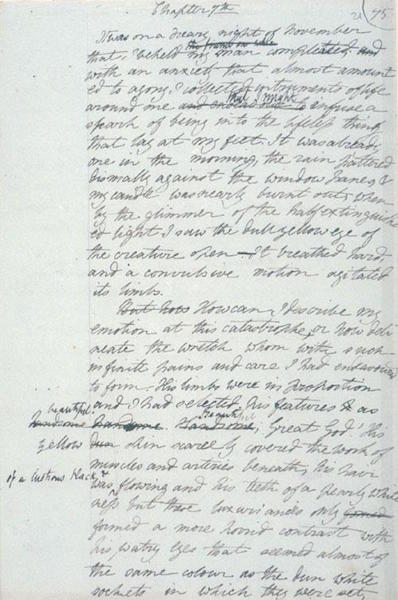 Chapter 7th
75
It was on a dreary night of November
the frame on whic
that I beheld my man completed and
with an anxiety that almost amount
ed to agony, I collected instruments of life
that I might
around me and endeavour to infuse a
spark of being into the lifeless thing
that lay at my feet. It was already
one in the morning, the rain pattered
dismally against the window panes, &
my candle was nearly burnt out, when
by the glimmer of the half extinguish
ed light I saw the dull yellow eye of
the creature open—It breathed hard,
and a convulsive motion agitated
its limbs.
But how How can I describe my
emotion at this catastrophe, or how deli
neate the wretch whom with such
infinite pains and care I had endeavoured
to form. His limbs were in proportion
and I had selected his features as
beautiful
handsome handsome. Handsome; Great God! His
yellow dun skin scarcely covered the work of
muscles and arteries beneath; his hair
of a lustrous black &
was flowing and his teeth of a pearly white
ness but these luxuriances only formed
formed a more horrid contrast with
his watry eyes that seemed almost of
the same colour as the dun white
sockets in which they were set,